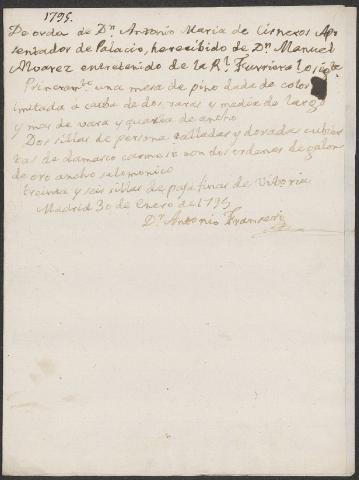 1795.
De ordn de Dn. Antonio Maria de Cisneros Apo
sentador de Palacio, he recibido de Dn. Manuel
Alvarez entretenido de la Rl. Furriera lo sigte.
Primeramte. una mesa de pino dada de color
imitada a caoba de dos varas y media de largo
y mas de vara y quarta de ancho
Dos sillas de persona talladas y doradas cubier
tas de damasco carmesi con dos ordenes de galon
de oro ancho salomonico
treinta y seis sillas de paja finas de Vitoria
Madrid 30 de Enero de 1795
Dn. Antonio